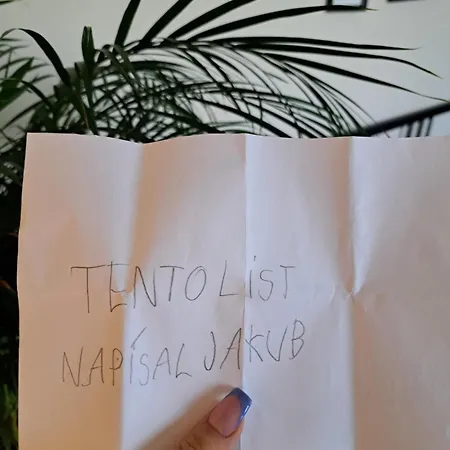 TENTO LIST
NAPÍSAL JAKUB